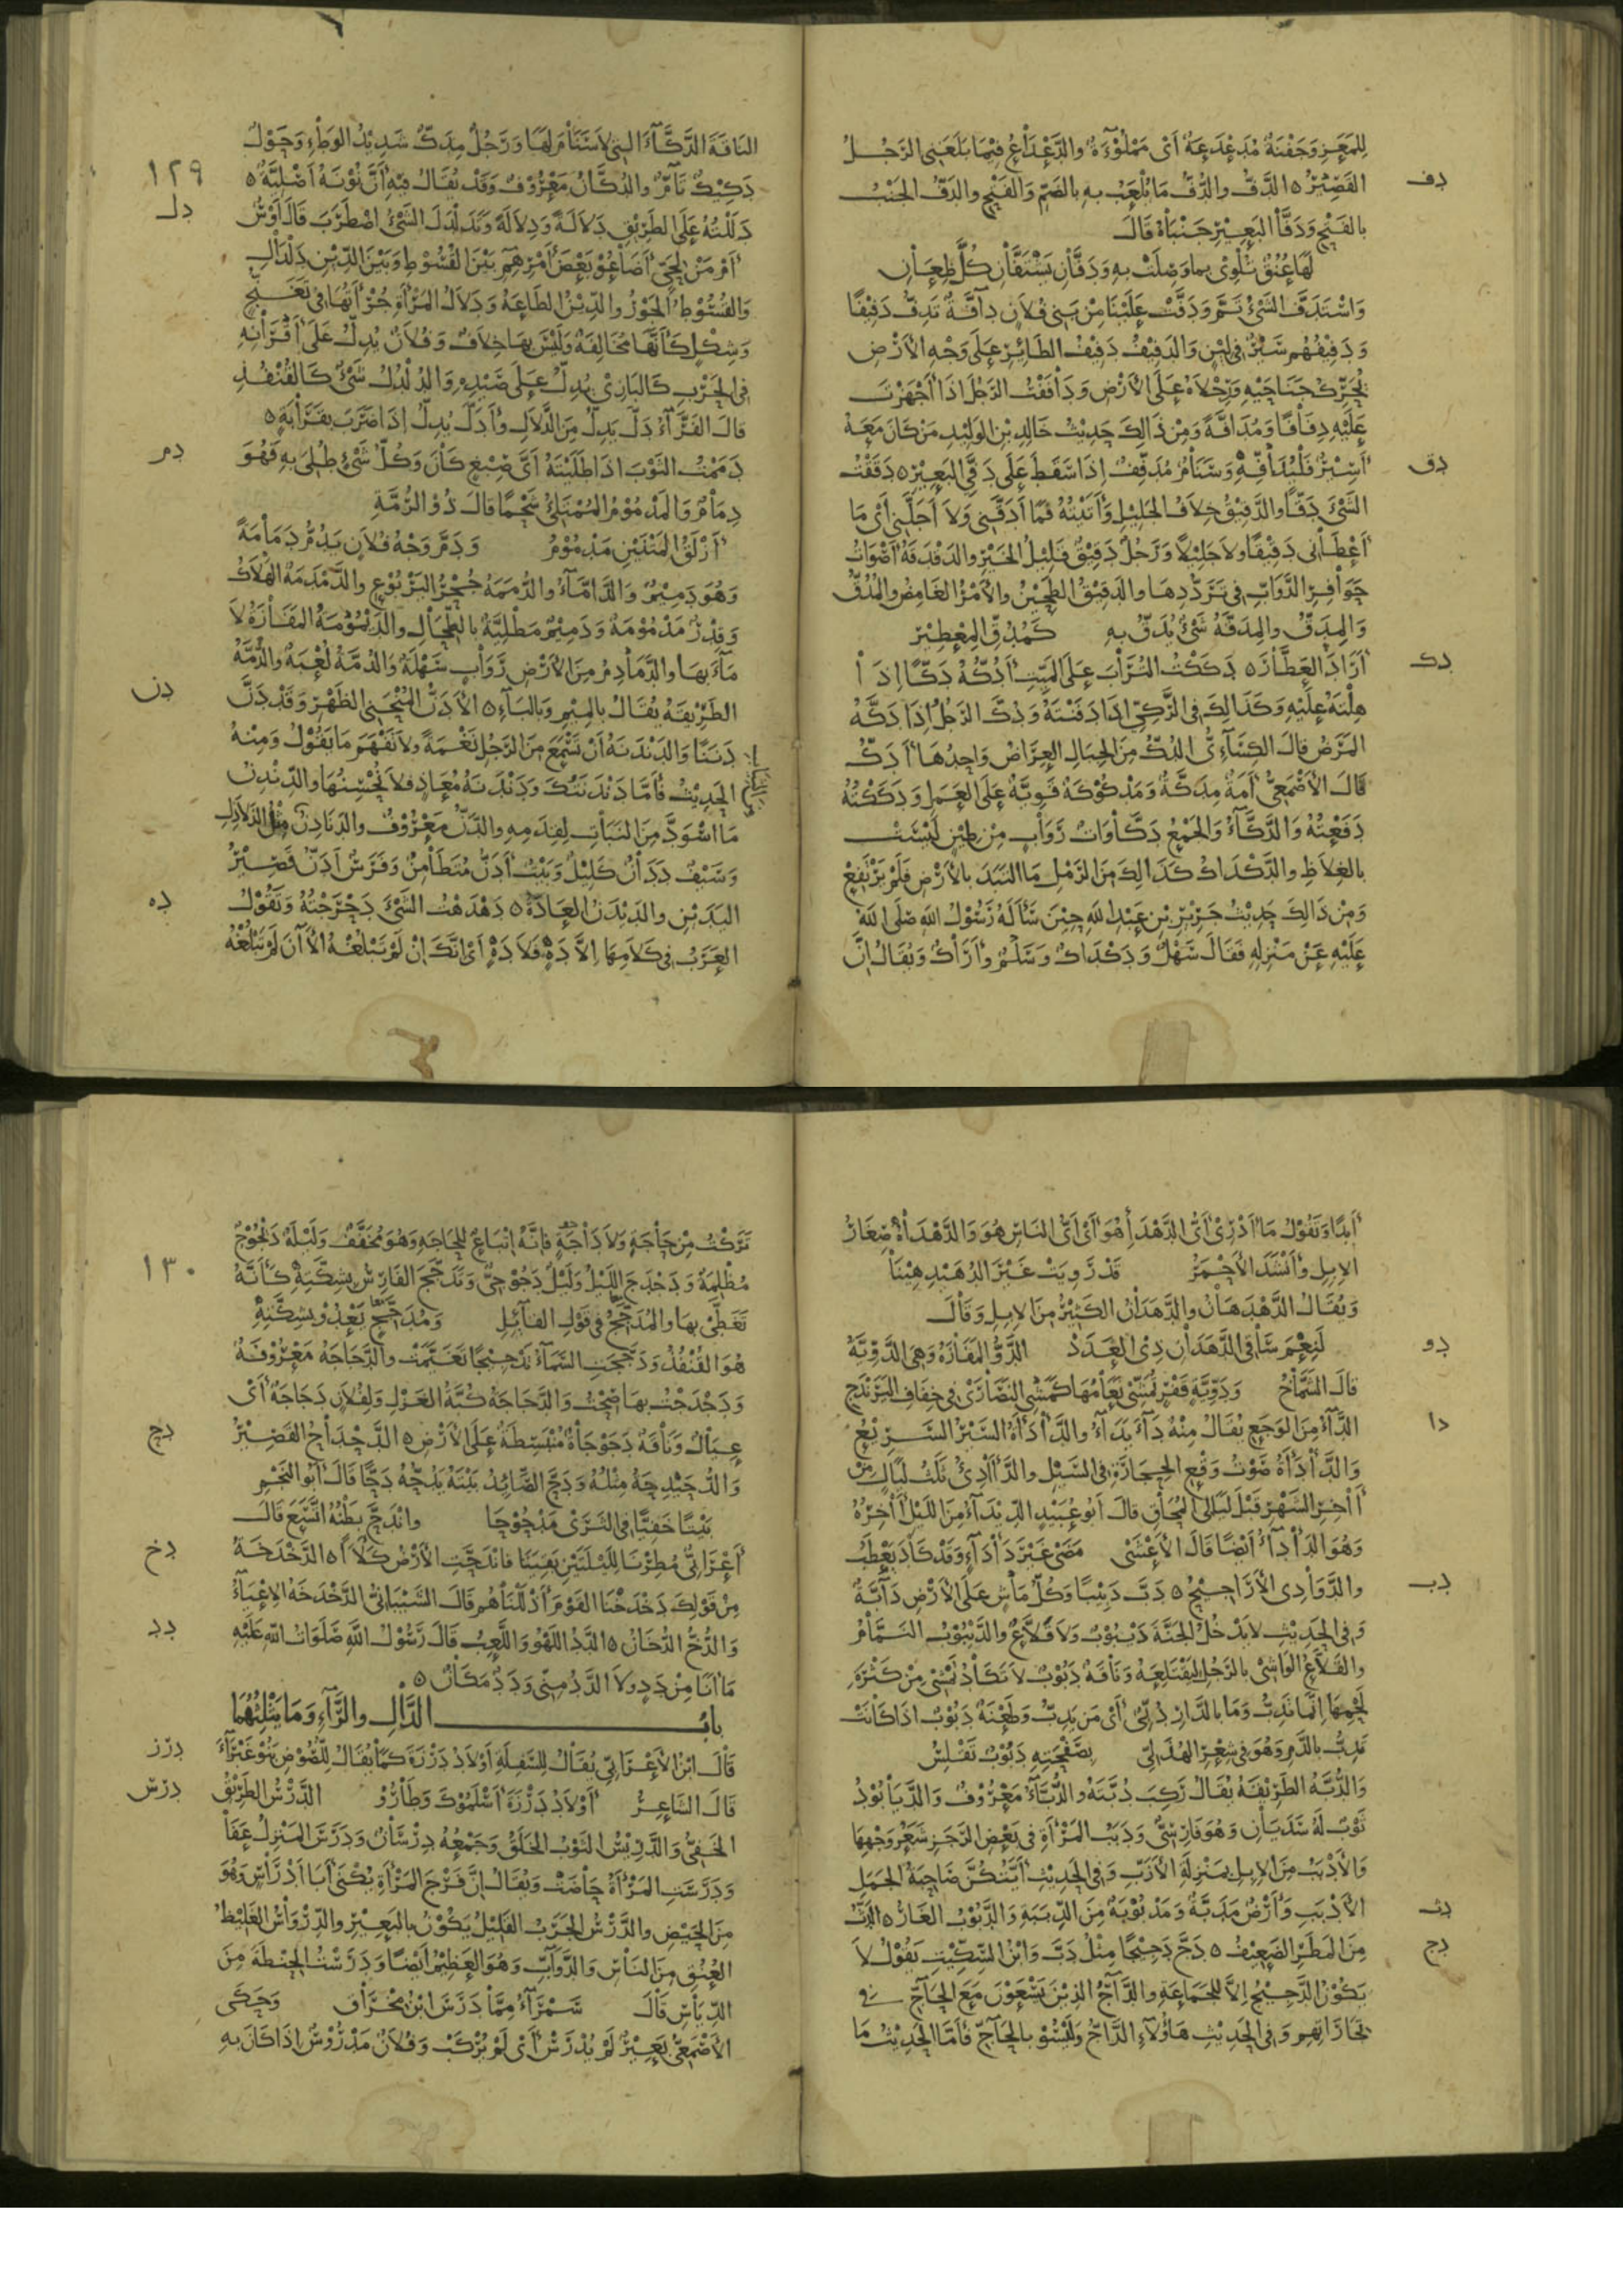 للمعز وجفنة مدعدعة أي مملوءة والدعداع فيما بلغني الرجل
دف
القصير ٥ الدف والدف ما يلعب به بالضم والفتح والدف الجنب
بالفتح ودفا البعير جنباه قال
لها عنق تلوي بما وصلت به ودفان يشتفان كل ظعان
واستدف الشيء تم ودفت علينا من بني فلان دافة تدف دفيفا
ودفيفهم سير في لين والدفيف دفيف الطائر على وجه الأرض
يحرك جناحيه ورجلاه على الأرض ودافقت الرجل إذا أجهزت
عليه دفافا ومدافة ومن ذالك حديث خالد بن الوليد من كان معه
دق
أسير فليدافه وسنام مدفف إذا سقط على دفي البعير ٥ دققت
الشيء دقا والدقيق خلاف الجليل وأتيته فما أدقني ولا أجلني أي ما
أعطاني دقيقا ولا جليلا ورجل دقيق قليل الخير والدقدقة أصوات
حوافر الدواب في ترددها والدقيق الطحين والأمر الغامض والمدق
والمدق والمدقة شيء يدق به كمدق المعطير
دك
أراد العطار ٥ دككت التراب على الميت أدكه دكا إذا
هلته عليه وكذالك في الركي إذا دفنته ودك الرجل إذا دكه
المرض قال الكسائي الدك من الجبال العراض واحدها أدك
قال الأصمعي أمة مدكة ومدكوكة قوية على العمل ودككته
دفعته والدكاء والجمع دكاوات رواب من طين ليست
بالغلاظ والدكداك كذالك من الرمل ما التبد بالأرض فلم يرتفع
ومن ذالك حديث جرير بن عبد الله حين سأله رسول الله صلى الله
عليه عن منزله فقال سهل ودكداك وسلم وأراك ويقال إن
الناقة الدكاء التي لا سنام لها ورجل مدك شديد الوطء وحول
١٢٩
دكيك تام والدكان معروف وقد يقال فيه أن نونه أصلية ٥
دل
دللته على الطريق دلالة ودلالة وتدلدل الشيء اضطرب قال أوس
أم من لحي أضاعوا بعض أمرهم بين القسوط وبين الدين دلدال
والقسوط الجور والدين الطاعة ودلال المرأة جرأتها في تغنج
وشكل كأنها مخالفة وليس بها خلاف وفلان يدل على أقرانه
في الحرب كالبازي يدل على صيده والدلدل شيء كالقنفذ
قال الفراء دل يدل من الدلال وأدل يدل إذا ضرب بقرابة ٥
دم
دممت الثوب إذا طليته أي صبغ كان وكل شيء طلي به فهو
دمام والمدموم الممتلئ شحما قال ذو الرمة
أزلق المتنين مدموم ودم وجه فلان يدم دمامة
وهو دميم والداماء والدممة جحر اليربوع والدمدمة الهلاك
وقدر مدمومة ودميم مطلية بالطحال والديمومة المفازة لا
ماء بها والدمادم من الأرض رواب سهلة والدمة لعبة والدمة
دن
الطريقة يقال بالميم وبالباء ٥ الأدن المنحني الظهر وقد دن
دننا والدندنة أن تسمع من الرجل نغمة ولا تفهم ما يقول ومنه
الحديث فأما دندنتك ودندنة معاذ فلا نحسنها والدندن
ما اسود من النبات لقدمه والدن معروف والدنادن مثل الذلاذل
وسيف ددان كليل وبيت أدن متطامن وفرس أدن قصير
ده
اليدين والديدن العادة ٥ دهدهت الشيء دحرجته وتقول
العرب في كلامها إلا ده فلا ده أي إنك إن لم تبلغه الآن لم تبلغه
أبدا وتقول ما أدري أي الدهدأ هو أي أي الناس هو والدهداه صغار
الإبل وأنشد الأحمر قد رويت غير الدهيدهينا
ويقال الدهدهان والدهدان الكثير من الإبل وقال
دو
لنعم ساقي الدهدان ذي العدد الدو المفازة وهي الدوية
قال الشماخ ودوية قفر تمشي نعامها كمشي النصارى في خفاف اليرندج
دا
الداء من الوجع يقال منه داء يداء والدأدأة السير السريع
والدأدأة صوت وقع الحجارة في السيل والدآدئ ثلث ليال من
آخر الشهر قبل ليالي المحاق قال أبو عبيد الديداء من الليل آخره
وهو الدأداء أيضا قال الأعشى مضى غير دأداء وقد كاد يعطب
دب
والدوادي الأراجيح ٥ دب دبيبا وكل ماش على الأرض دابة
وفي الحديث لا يدخل الجنة ديبوب ولا قلاع والديبوب النمام
والقلاع الواشي بالرجل ليقتلعه وناقة دبوب لا تكاد تمشي من كثرة
لحمها إنما تدب وما بالدار دبي أي من يدب وطعنة دبوب إذا كانت
تدب بالدم وهو في شعر الهذلي بصفحته دبوب تقلس
والدبة الطريقة يقال ركب دبته والدباء معروف والديابوذ
ثوب له سديان وهو فارسي ودبب المرأة في بعض الرجز شعر وجهها
والأدبب من الإبل بمنزلة الأزب وفي الحديث أيتكن صاحبة الجمل
دث
الأدبب وأرض مدبة ومدبوبة من الدببة والدبوب الغار ٥ الدث
دج
من المطر الضعيف ٥ دج دجيجا مثل دب وابن السكيت يقول لا
يكون الدجيج إلا للجماعة والداج الذين يسعون مع الحاج في
تجاراتهم وفي الحديث هاؤلاء الداج وليسوا بالحاج فأما الحديث ما
تركت من حاجة ولا داجة فإنه إتباع للحاجة وهو مخفف وليلة دجوج
١٣٠
مظلمة ودجدج الليل وليل دجوجي وتدجج الفارس بشكته كأنه
تغطى بها والمدجج في قول القائل ومدجج يعدو بشكته
هو القنفذ ودججت السماء تدجيجا تغيمت والدجاجة معروفة
ودجدجت بها صحت والدجاجة كبة الغزل ولفلان دجاجة أي
دح
عيال وناقة دجوجاة منبسطة على الأرض ٥ الدحداح القصير
والدحيدحة مثله ودح الصائد بيته يدحه دحا قال أبو النجم
بيتا خفيا في الثرى مدحوحا واندح بطنه اتسع قال
دخ
أعرابي مطرنا لليلتين بقيتا فاندحت الأرض كلأ ٥ الدخدخة
من قولك دخدخنا القوم أذللناهم قال الشيباني الدخدخة الإعياء
دد
والدخ الدخان ٥ الدد اللهو واللعب قال رسول الله صلوات الله عليه
ما أنا من دد ولا الدد مني ودد مكان ٥
باب الدال والراء وما يثلثهما
درز
قال ابن الأعرابي يقال للسفلة أولاد درزة كما يقال للصوص بنو غبراء
درس
قال الشاعر أولاد درزة أسلموك وطاروا الدرس الطريق
الخفي والدريس الثوب الخلق وجمعه درسان ودرس المنزل عفا
ودرست المرأة حاضت ويقال إن فرج المرأة يكنى أبا أدراس وهو
من الحيض والدرس الجرب القليل يكون بالبعير والدرواس الغليظ
العنق من الناس والدواب وهو العظيم أيضا ودرست الحنطة من
الدياس قال سمراء مما درس ابن مخراق وحكى
الأصمعي بعير لم يدرس أي لم يركب وفلان مدروس إذا كان به